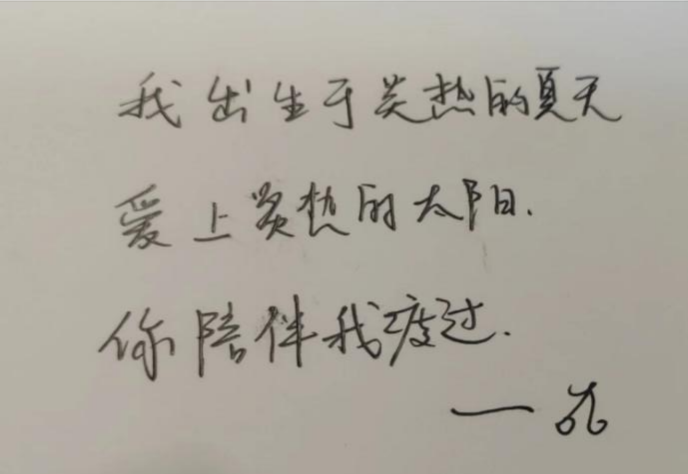 我出生于炎热的夏天
爱上炎热的太阳.
你陪伴我度过.